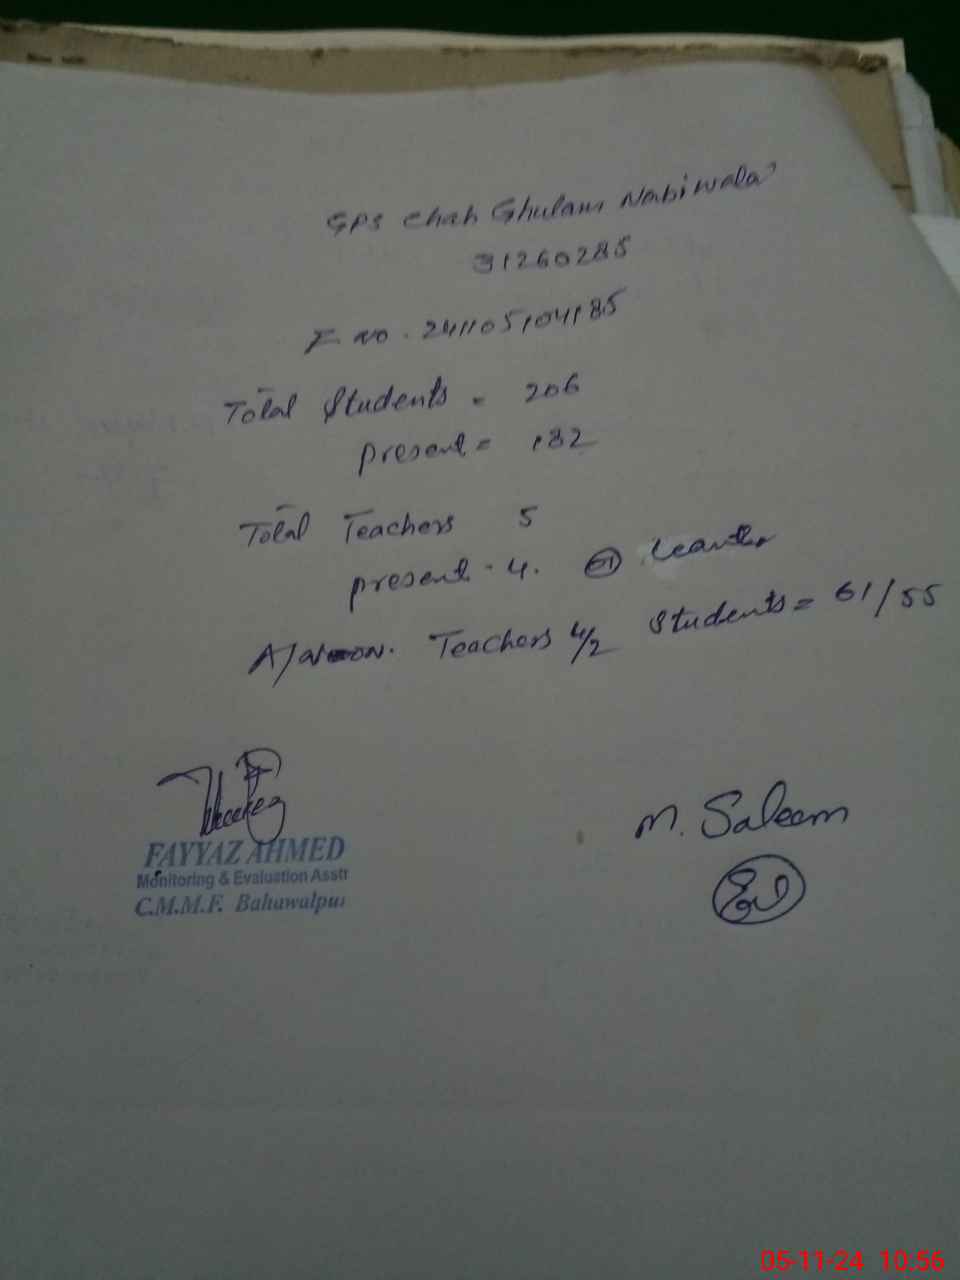 GPS Chah Ghulam Nabiwala
31260285
F no. 241105104185
Total Students = 206
present = 182
Total Teachers 5
present - 4. 01 Leave
A/noon. Teachers 4/2 Students = 61/55
FAYYAZ AHMED
Monitoring & Evaluation Asstt
C.M.M.F. Bahawalpur
M. Saleem
05-11-24 10:56